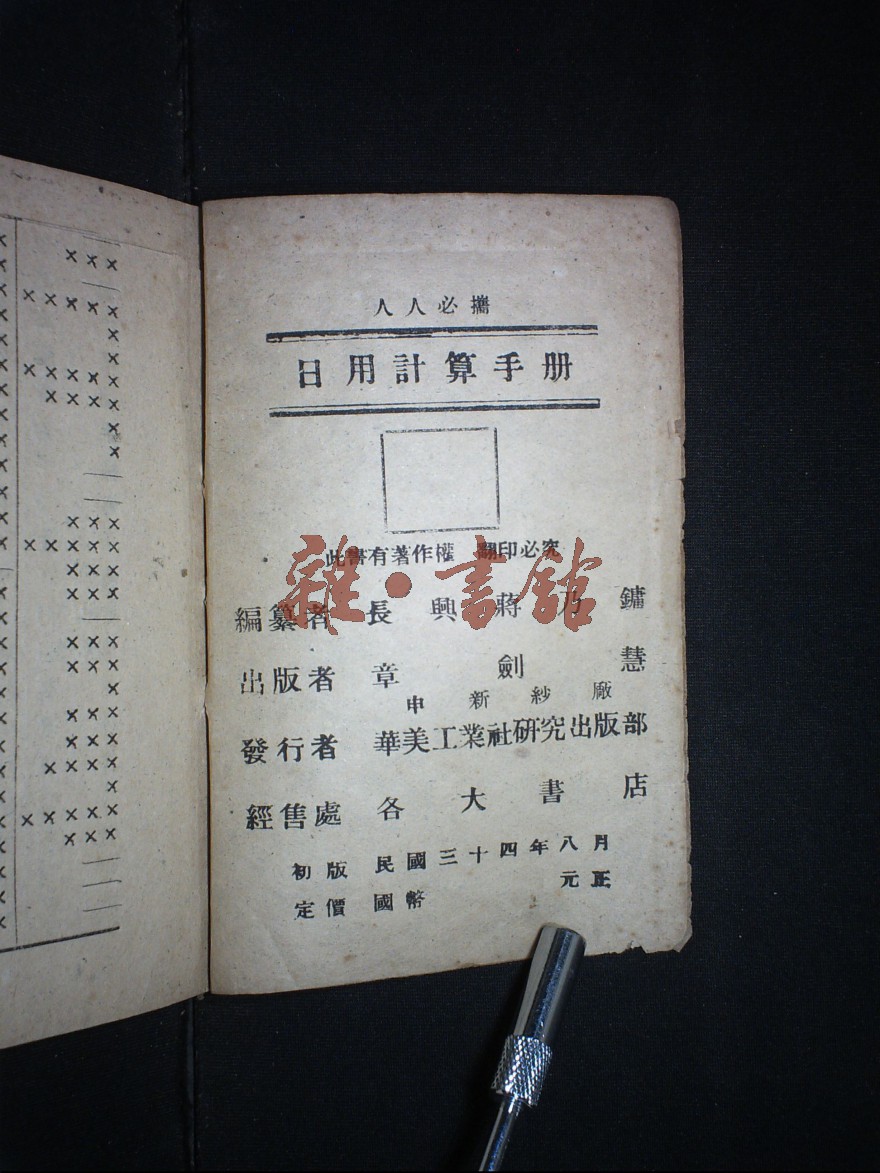 人人必攜
日用計算手册
此書有著作權 翻印必究
雜·書館
編纂者 長興蔣乃鏞
出版者 章劍慧
申新紗廠
發行者 華美工業社研究出版部
經售處 各大書店
初版 民國三十四年八月
定價 國幣 元正